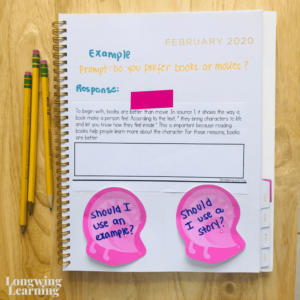 FEBRUARY 2020
Example
Prompt: Do you prefer books or movies?
Response:
To begin with, books are better than movie. In source 1, it shows the way a
book make a person feel. According to the text, "they bring characters to life
and let you know how they feel inside." This is important because reading
books help people learn more about the character. For these reasons, books
are better.
Should I
use an
example?
Should
I use a
story?
Longwing
Learning